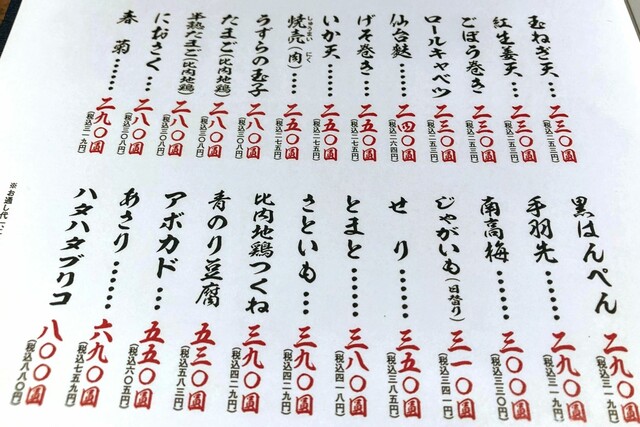 玉ねぎ天……二三〇圓
(税込二五三円)
紅生姜天…二三〇圓
(税込二五三円)
ごぼう巻き…二三〇圓
(税込二五三円)
ロールキャベツ 二三〇圓
(税込二五三円)
仙台麩……二四〇圓
(税込二六四円)
げそ巻き…二五〇圓
(税込二七五円)
いか天……二五〇圓
(税込二七五円)
焼売(肉)…二五〇圓
しゅうまい にく
(税込二七五円)
うずらの玉子 二八〇圓
(税込三〇八円)
たまご(比内地鶏) 二八〇圓
(税込三〇八円)
半熟たまご(比内地鶏) 二八〇圓
(税込三〇八円)
におさく…二八〇圓
(税込三〇八円)
春菊……二九〇圓
(税込三一九円)
黒はんぺん 二九〇圓
(税込三一九円)
手羽先……二九〇圓
(税込三一九円)
南高梅……三〇〇圓
(税込三三〇円)
じゃがいも(日替り) 三一〇圓
(税込三四一円)
せり……三五〇圓
(税込三八五円)
とまと……三八〇圓
(税込四一八円)
さといも…三九〇圓
(税込四二九円)
比内地鶏つくね 三九〇圓
(税込四二九円)
青のり豆腐 五三〇圓
(税込五八三円)
アボカド…五五〇圓
(税込六〇五円)
あさり……六九〇圓
(税込七五九円)
ハタハタブリコ 八〇〇圓
(税込八八〇円)
※お通し代